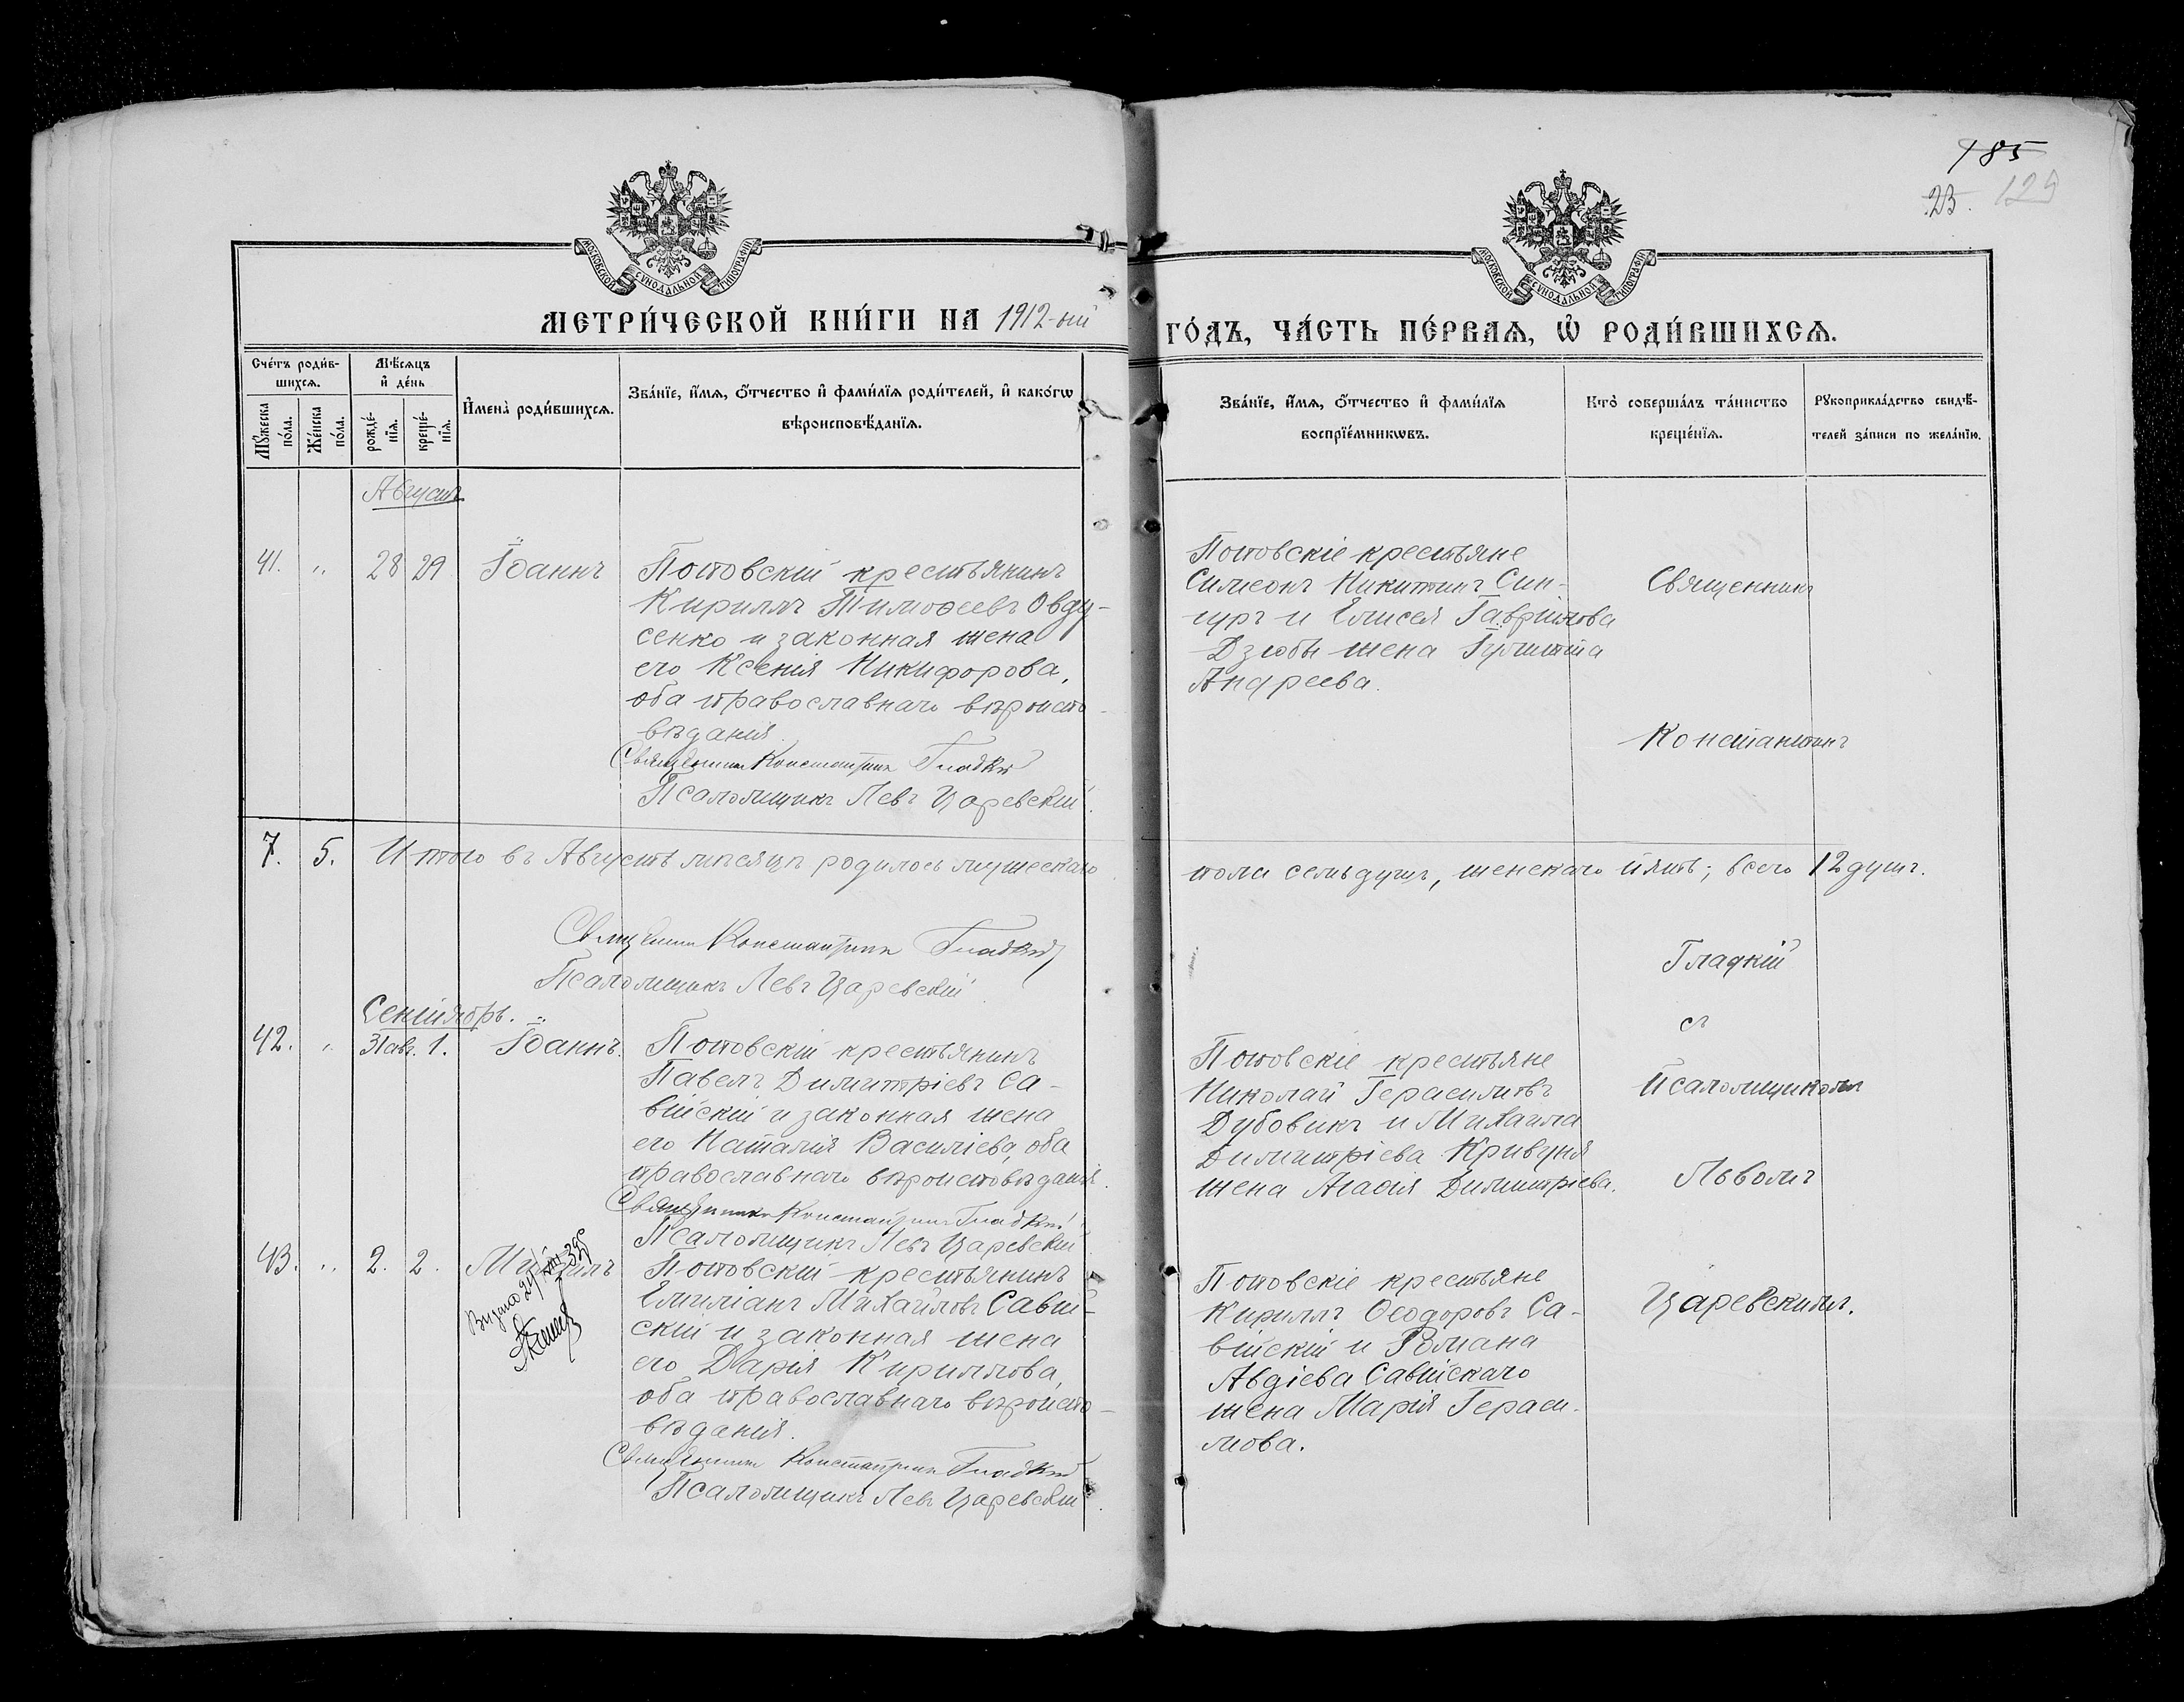 185
23. 129
МОСКОВСКОЙ СѴНОДАЛЬНОЙ ТИПОГРАФІИ
МОСКОВСКОЙ СѴНОДАЛЬНОЙ ТИПОГРАФІИ
МЕТРИ́ЧЕСКОЙ КНИ́ГИ НА 1912-ый
ГО́ДЪ, ЧА́СТЬ ПЕ́РВАѦ, Ѡ҆ РОДИ́ВШИХСѦ.
Сче́тъ роди́в-
шихсѧ.
Мꙋ́жеска
по́ла.
Же́нска
по́ла.
Мѣ́сѧцъ
и҆ де́нь
рожде́-
нїѧ.
креще́-
нїѧ.
И҆мена̀ роди́вшихсѧ.
Зва́нїе, и҆́мѧ, ѻ҆́тчество и҆ фами́лїѧ роди́телей, и҆ како́гѡ
вѣроисповѣ́данїѧ.
Зва́нїе, и҆́мѧ, ѻ҆́тчество и҆ фами́лїѧ
воспрїе́мникѡвъ.
Кто̀ соверша́лъ та́инство
креще́нїѧ.
Рꙋкоприкла́дство свидѣ́-
телей за́писи по жела́нїю.
Августъ.
41. " 28 29 Іоаннъ
Поповскій крестьянинъ
Кириллъ Тимоѳеевъ Овду-
сенко и законная жена
его Ксенія Никифорова,
оба православнаго вѣроиспо-
вѣданія.
Священникъ Константинъ Гладкій
Псаломщикъ Левъ Царевскій.
Поповскіе крестьяне
Симеонъ Никитинъ Син-
гуръ и Елисея Гавріилова
Дзюбы жена
Андреева.
Священникъ
Константинъ
7. 5. Итого въ Августѣ мѣсяцѣ родилось мужескаго
пола семь душъ, женскаго пять; всего 12 душъ.
Священникъ Константинъ Гладкій
Псаломщикъ Левъ Царевскій.
Гладкій
съ
Сентябрь.
42. " 31 авг. 1. Іоаннъ.
Поповскій крестьянинъ
Павелъ Димитріевъ Са-
війскій и законная жена
его Наталія Василіева, оба
православнаго вѣроисповѣданія.
Священникъ Константинъ Гладкій
Псаломщикъ Левъ Царевскій
Поповскіе крестьяне
Николай Герасимовъ
Дубовикъ и Михаила
Димитріева Кривуня
жена Агаѳія Димитріева.
Псаломщикомъ
Львомъ
43. " 2. 2. Михаилъ
Поповскій крестьянинъ
Емиліанъ Михайловъ Савій-
скій и законная жена
его Дарія Кириллова,
оба православнаго вѣроиспо-
вѣданія.
Священникъ Константинъ Гладкій
Псаломщикъ Левъ Царевскій.
Поповскіе крестьяне
Кириллъ Ѳеодоровъ Са-
війскій и Романа
Авдіева Савійскаго
жена Марія Гераси-
мова.
Царевскимъ.